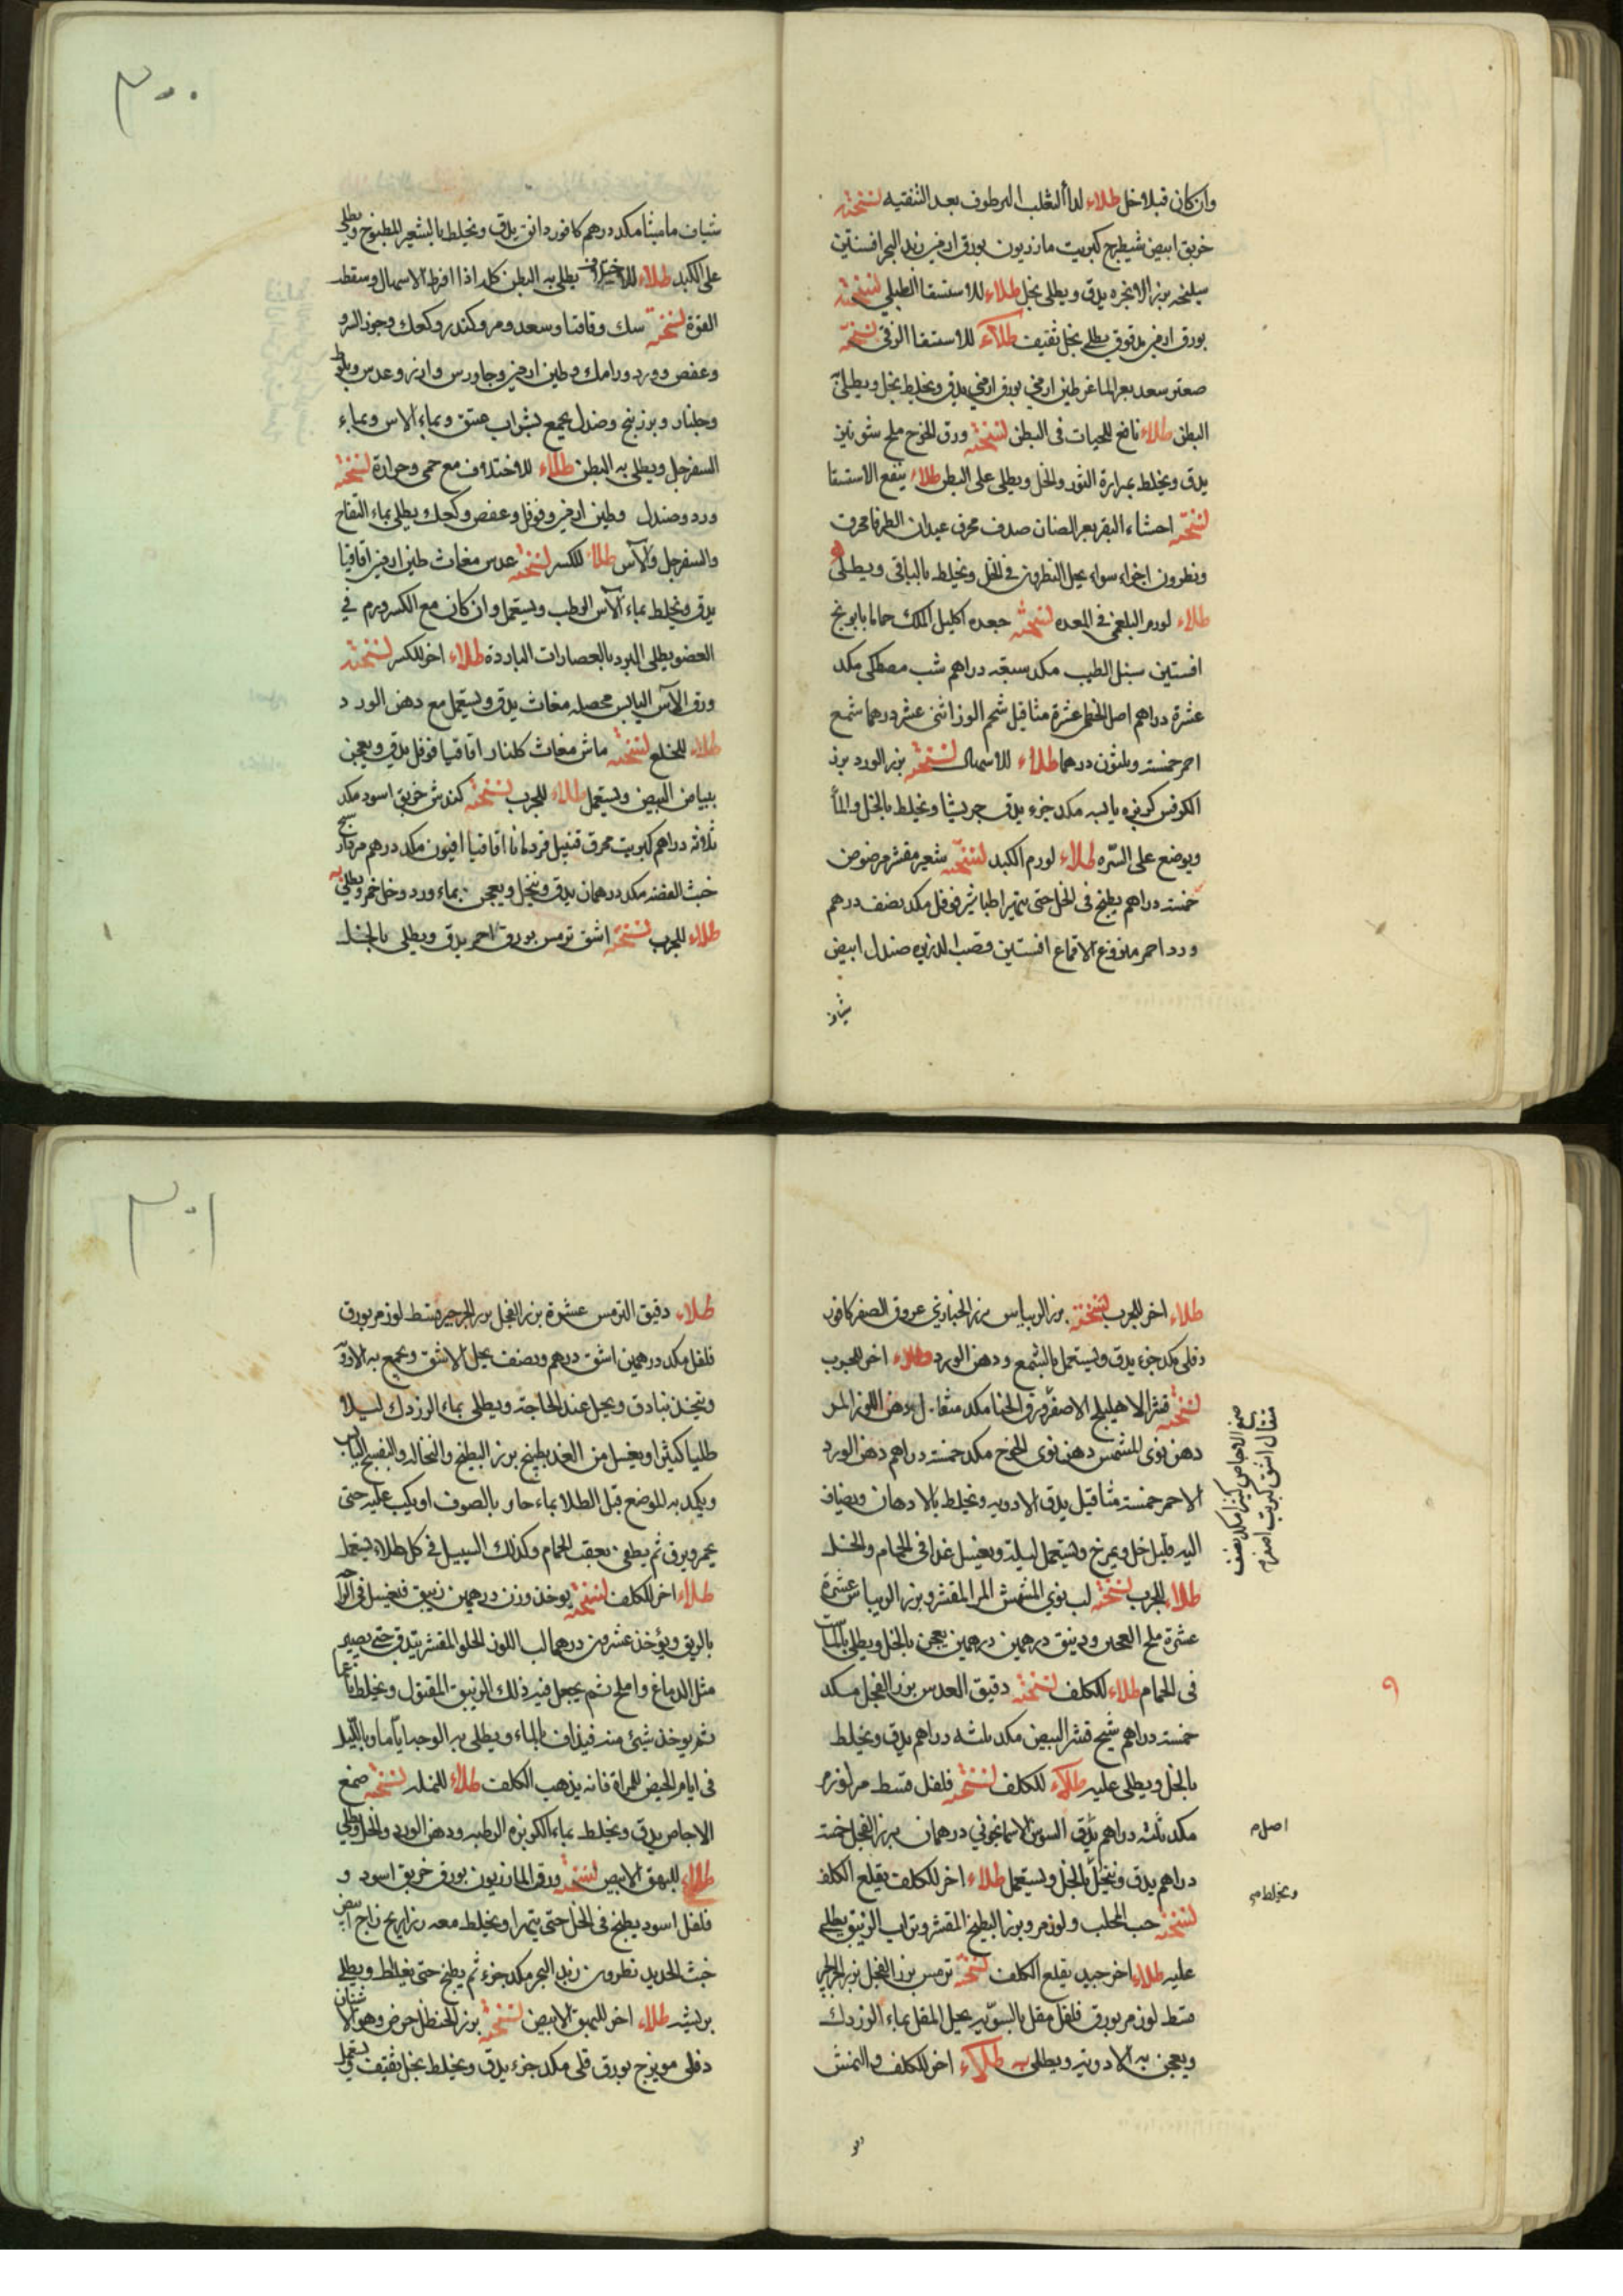 وان كان قبلا خل طلاء لدا الثعلب المرطوف بعد التنقيه نسخته
خربق ابيض شيطرج كبريت مازريون بورق ارمني زبد البحر افسنتين
سليخه بزر الانجره يدق ويطلى بخل طلاء للاستسقا الطبلي نسخته
بورق ارمني مدقوق يطلى بخل ثقيف طلاء للاستسقا الزقي نسخته
صعتر سعد بعر الماعز طين ارمني بورق ارمني يدق ويخلط بخل ويطلى
البطن طلاء نافع للحيات في البطن نسخته ورق الخوخ ملح شونيز
يدق ويخلط بمرارة الثور والخل ويطلى على البطن طلاء ينفع الاستسقا
نسخته احشاء البقر بعر الضان صدف محرق عيدان الطرفا محرق
ونطرون اجزاء سواء يحل النطرون في الخل ويخلط بالباقي ويطلى به
طلاء لورم البلغمي في المعده نسخته جعده اكليل الملك حماما بابونج
افسنتين سنبل الطيب مكد سبعه دراهم شب مصطكى مكد
عشرة دراهم اصل الخطمي عشرة مثاقيل شحم الوز اثنى عشر درهما شمع
احمر خمسه وثلثون درهما طلاء للاسهال نسخته بزر الورد بزر
الكرفس كزبره يابسه مكد جزء يدق جريشا ويخلط بالخل والماء
ويوضع على السره طلاء لورم الكبد نسخته شعير مقشر مرضوض
خمسه دراهم يطبخ في الخل حتى يتهرا طباشير فوفل مكد نصف درهم
ورد احمر منزوع الاقماع افسنتين قصب الذريره صندل ابيض
شياف
٣٠٠
شياف ماميثا مكد درهم كافور دانق يدق ويخلط بالشعير المطبوخ ويطلى
على الكبد طلاء يطلى به البطن كله اذا افرط الاسهال وسقط
القوة نسخته سك وقاقيا وسعد ومر وكندر وكعك وجوز السرو
وعفص وورد ورامك وطين ارمني وجاورس وارز وعدس وبلوط
وجلنار وبزر بنج وصندل يجمع بشراب عتيق وبماء الاس وبماء
السفرجل ويطلى به البطن طلاء للاختلاف مع حمى وحرارة نسخته
ورد وصندل وطين ارمني وفوفل وعفص وكعك يطلى بماء التفاح
والسفرجل والآس طلاء للكسر نسخته عدس مغاث طين ارمني اقاقيا
يدق ويخلط بماء الآس الرطب ويستعمل وان كان مع الكسر ورم في
العضو يطلى المبرد بالعصارات الباردة طلاء اخر للكسر نسخته
ورق الآس اليابس محصله مغاث يدق ويستعمل مع دهن الورد
طلاء للخلع نسخته ماش مغاث كلنار اقاقيا فوفل يدق ويعجن
ببياض البيض ويستعمل طلاء للجرب نسخته كندش خربق اسود مكد
ثلاثه دراهم كبريت محرق قنبيل قردمانا اقاقيا افيون مكد درهم مرداسنج
خبث الفضه مكد درهمان يدق وينخل ويعجن بماء ورد وخل خمر ويطلى به
طلاء للجرب نسخته اشق ترمس بورق احمر يدق ويطلى بالخل
طلاء اخر للجرب نسخته بزر الريباس بزر الخبازي عروق الصفر كافور
دفلى مكد جزء يدق ويستعمل بالشمع ودهن الورد طلاء اخر للجرب
نسخته قشر الاهليلج الاصفر ورق الحنا مكد مثقال دهن اللوز المر
دهن نوى المشمش دهن نوى الخوخ مكد خمسه دراهم دهن الورد
الاحمر خمسه مثاقيل يدق الادويه ويخلط بالادهان ويضاف
اليه قليل خل ويمرخ ويستعمل ليلة ويغسل غدا في الحمام والخل
طلاء للجرب نسخته لب نوي المشمش المر المقشر وبزر الريباس عشرة
عشرة ملح العجين وزيبق درهمين درهمين يعجن بالخل ويطلى
في الحمام طلاء للكلف نسخته دقيق العدس بزر الفجل مكد
خمسه دراهم شيح قشر البيض مكد ثلثه دراهم يدق ويخلط
بالخل ويطلى عليه طلاء للكلف نسخته فلفل قسط مر لوز مر
مكد ثلثه دراهم يدق السوسن الاسمانجوني درهمان بزر الفجل خمسه
دراهم يدق وينخل بالخل ويستعمل طلاء اخر للكلف يقلع الكلف
نسخته حب المحلب ولوز مر وبزر البطيخ المقشر وتراب الزيبق يطلى
عليه طلاء اخر جيد يقلع الكلف نسخته ترمس بزر الفجل بزر الجرجير
قسط لوز مر بورق فلفل مقل بالسويه يحل المقل بماء الوزدك
ويعجن به الادويه ويطلى به طلاء اخر للكلف والنمش
صمغ الاجاص كثيرا مكد نصف
مثقال اشق كبريت اصفر
اصل م
ويخلط م
٩
٣٠١
طلاء دقيق الترمس عشرة بزر الفجل بزر الجرجير قسط لوز مر بورق
فلفل مكد درهمين اشق درهم ونصف يحل الاشق ويجمع به الادوية
ويتخذ بنادق ويحل عند الحاجة ويطلى بماء الوزدك ليلا
طليا كثيرا ويغسل من الغد بطبيخ بزر البطيخ والنخاله والبنفسج اليابس
ويكمد به الموضع قبل الطلا بماء حار بالصوف او يكب عليه حتى
يحمر ويرق ثم يطلى بعقب الحمام وكذلك السبيل في كل طلاء يستعمل
طلاء اخر للكلف نسخته يوخذ وزن درهمين زيبق فيغسل في الراحه
بالريق ويؤخذ عشرون درهما لب اللوز الحلو المقشر يتدق حتى يصير
مثل الدماغ واملح ثم يجعل فيه ذلك الزيبق المقتول ويخلط ناعما
ثم يوخذ شيئ منه فيذاف بالماء ويطلى به الوجه اياما وبالليل
في ايام الحيض للمراة فانه يذهب الكلف طلاء للنمله نسخته صمغ
الاجاص يدق ويخلط بماء الكزبره الرطبه ودهن الورد والخل ويطلى
طلاء للبهق الابيض نسخته ورق المازريون بورق خربق اسود و
فلفل اسود يطبخ في الخل حتى يتهرا ويخلط معه زرنيخ زاج ابيض
خبث الحديد نطرون زبد البحر مكد جزء ثم يطبخ حتى يغلظ ويطلى
بريشه طلاء اخر للبهق الابيض نسخته بزر الحنظل حرض وهو الاشنان
دفلى مويزج بورق قلى مكد جزء يدق ويخلط بخل ثقيف ويستعمل